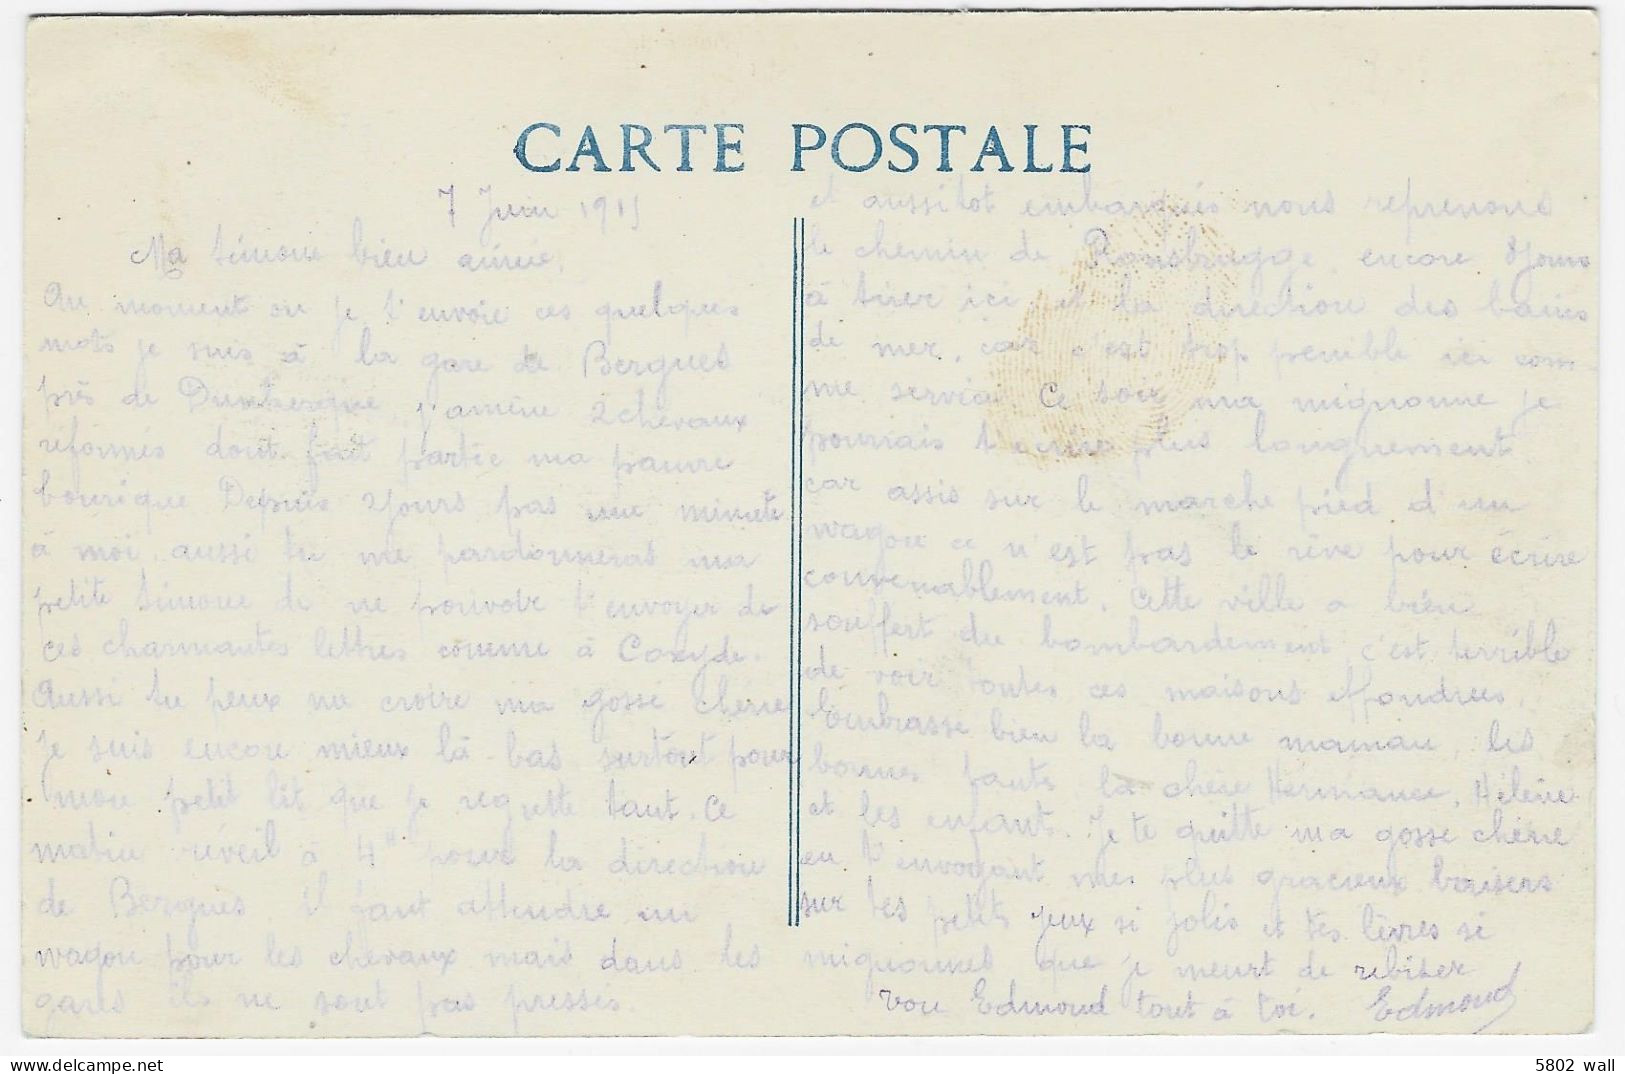 CARTE POSTALE
7 Juin 1915
Ma Simone bien aimée,
Au moment ou je t'envoie ces quelques
mots je suis à la gare de Bergues
près de Dunkerque, j'amène 2 chevaux
réformés dont fait partie ma pauvre
bourique Depuis 2 jours pas une minute
à moi, aussi tu me pardonneras ma
petite Simone de ne pouvoir t'envoyer de
ces charmantes lettres comme à Coxyde.
Aussi tu peux me croire ma gosse chérie
je suis encore mieux là-bas surtout pour
mon petit lit que je regrette tant. Ce
matin réveil à 4h pour la direction
de Bergues il faut attendre un
wagon pour les chevaux mais dans les
gares ils ne sont pas pressés.
et aussitot embarqués nous reprenons
le chemin de Rousbrugge, encore 8 jours
à tirer ici et la direction des bains
de mer, car c'est trop penible ici com-
me service. Ce soir ma mignonne je
pourrais t'ecrire plus longuement
car assis sur le marche pied d'un
wagon ce n'est pas le rêve pour écrire
convenablement. Cette ville a bien
souffert du bombardement, c'est terrible
de voir toutes ces maisons effondrées.
Embrasse bien la bonne maman, les
bonnes tantes la chère Hermance, Hélène
et les enfants. Je te quitte ma gosse chérie
en t'envoyant mes plus gracieux baisers
sur tes petits yeux si jolis et tes lèvres si
mignonnes que je meurt de
ton Edmond tout à toi. Edmond
5802 wall